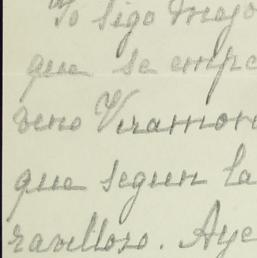 Yo sigo mejo
que se empe
veno Viramon
que segun la
ravilloso. Aye